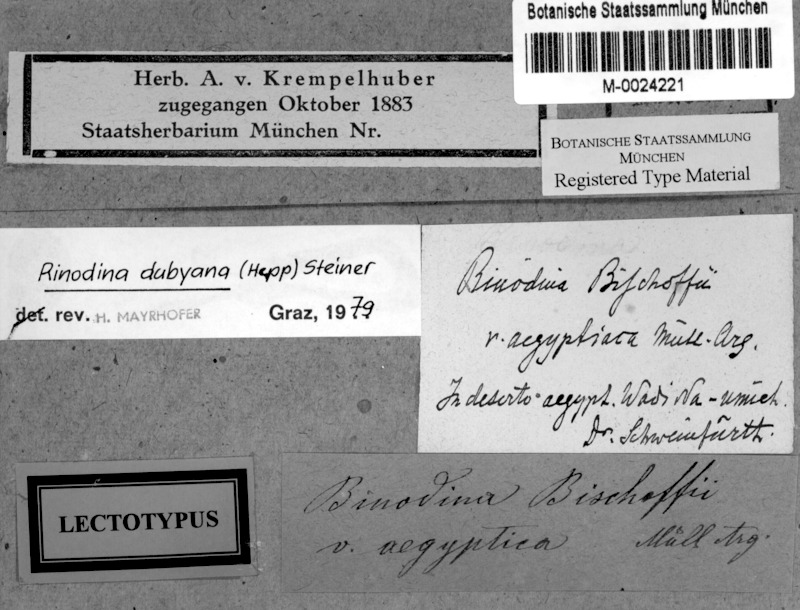 Botanische Staatssammlung München
M-0024221
Herb. A. v. Krempelhuber
zugegangen Oktober 1883
Staatsherbarium München Nr.
BOTANISCHE STAATSSAMMLUNG
MÜNCHEN
Registered Type Material
Rinodina dubyana (Hepp) Steiner
det. rev. H. MAYRHOFER Graz, 1979
Rinodina Bischoffii
v. aegyptiaca Müll. Arg.
In deserto aegypt. Wadi
Dr. Schweinfurth.
LECTOTYPUS
Rinodina Bischoffii
v. aegyptica Müll Arg.